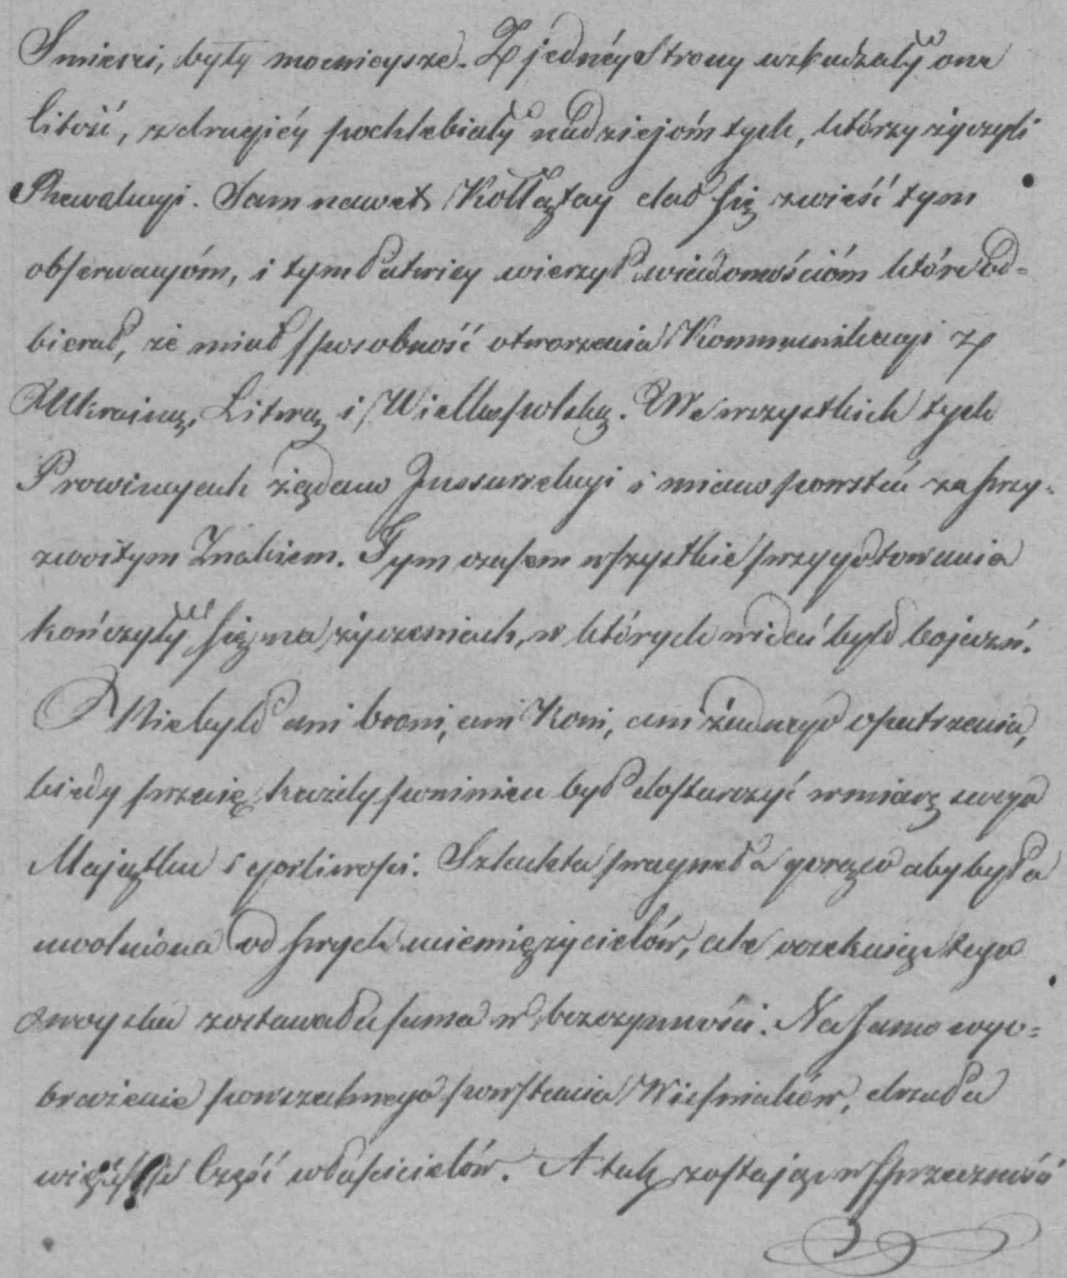 Smierci, były mocnieysze. Z jednéy strony wzbudzały one
litość, z drugiéy pochlebiały nadziejóm tych, którzy życzyli
Rewolucyi. Sam nawet Kołłątay dał się zwieść tym
obserwacyóm, i tym łatwiey wierzył wiadomościóm które od-
bierał, że miał sposobność otworzenia Kommunikacyi z
Ukrainą, Litwą i Wielkopolską. We wszystkich tych
Prowincyach żądano Inssurrekcyi i miano powstać za przy-
zwoitym Znakiem. Tym czasem wszystkie przygotowania
kończyły się na życzeniach, w których widać było bojaźń.
Niebyło ani broni, ani Koni, ani żadnego opatrzenia,
kiedy przecię każdy powinien był dostarczyć w miarę swego
Majątku i gorliwości. Szlachta pragneła gorąco aby była
uwolniona od swych uciemiężycielów, ale oczekując tego
zwrostu zostawała sama w bezczynności. Na samo wyo-
brażenie powszechnego powstania Wieśniaków, drzała
większa Część właścicielów. A tak zostając w sprzeczność